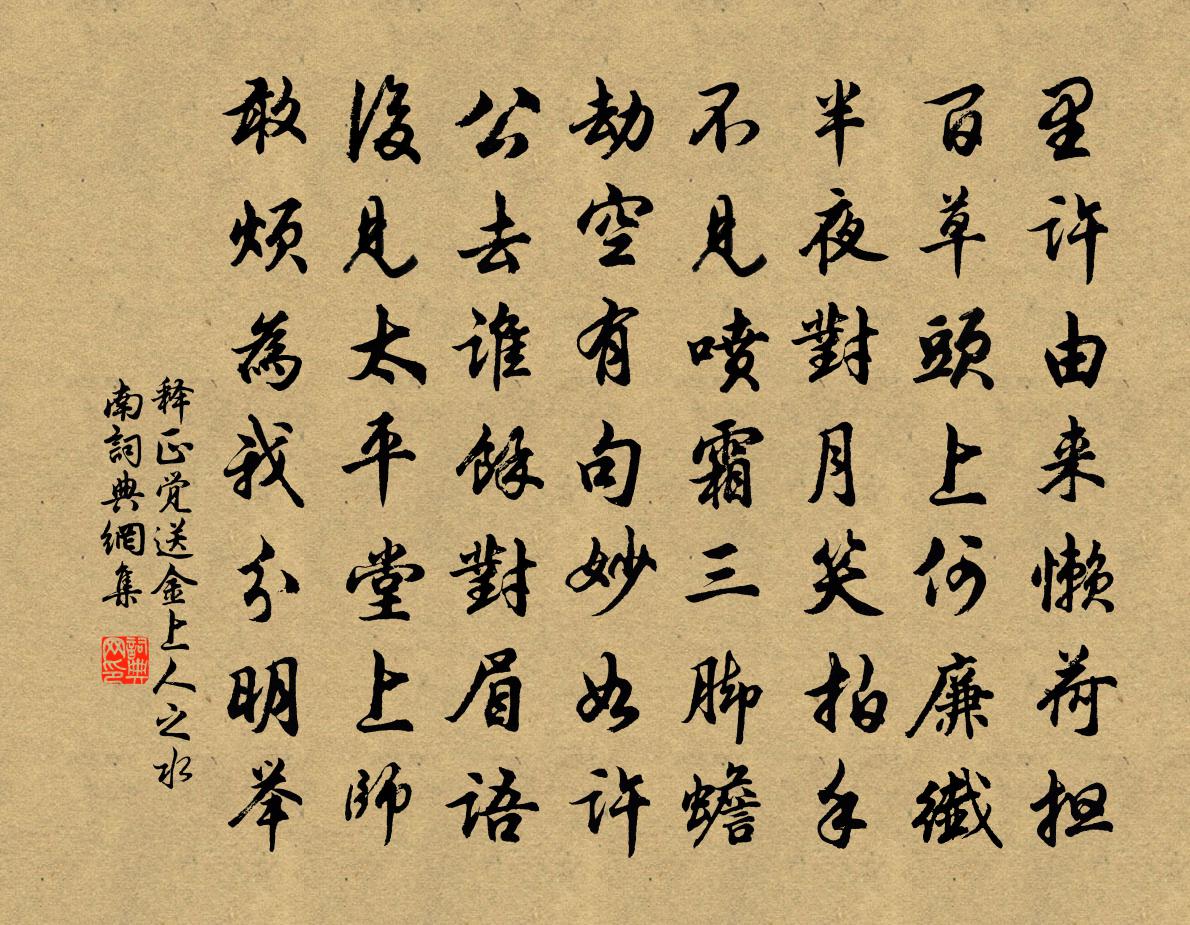 里許由来懒荷担
百草頭上何廉纖
半夜對月笑拍手
不見喷霜三脚蟾
劫空有句妙如许
公去谁餘對眉語
後見太平堂上師
敢烦為我分明举
释正觉送金上人之水
南詞典網集
詞典网印